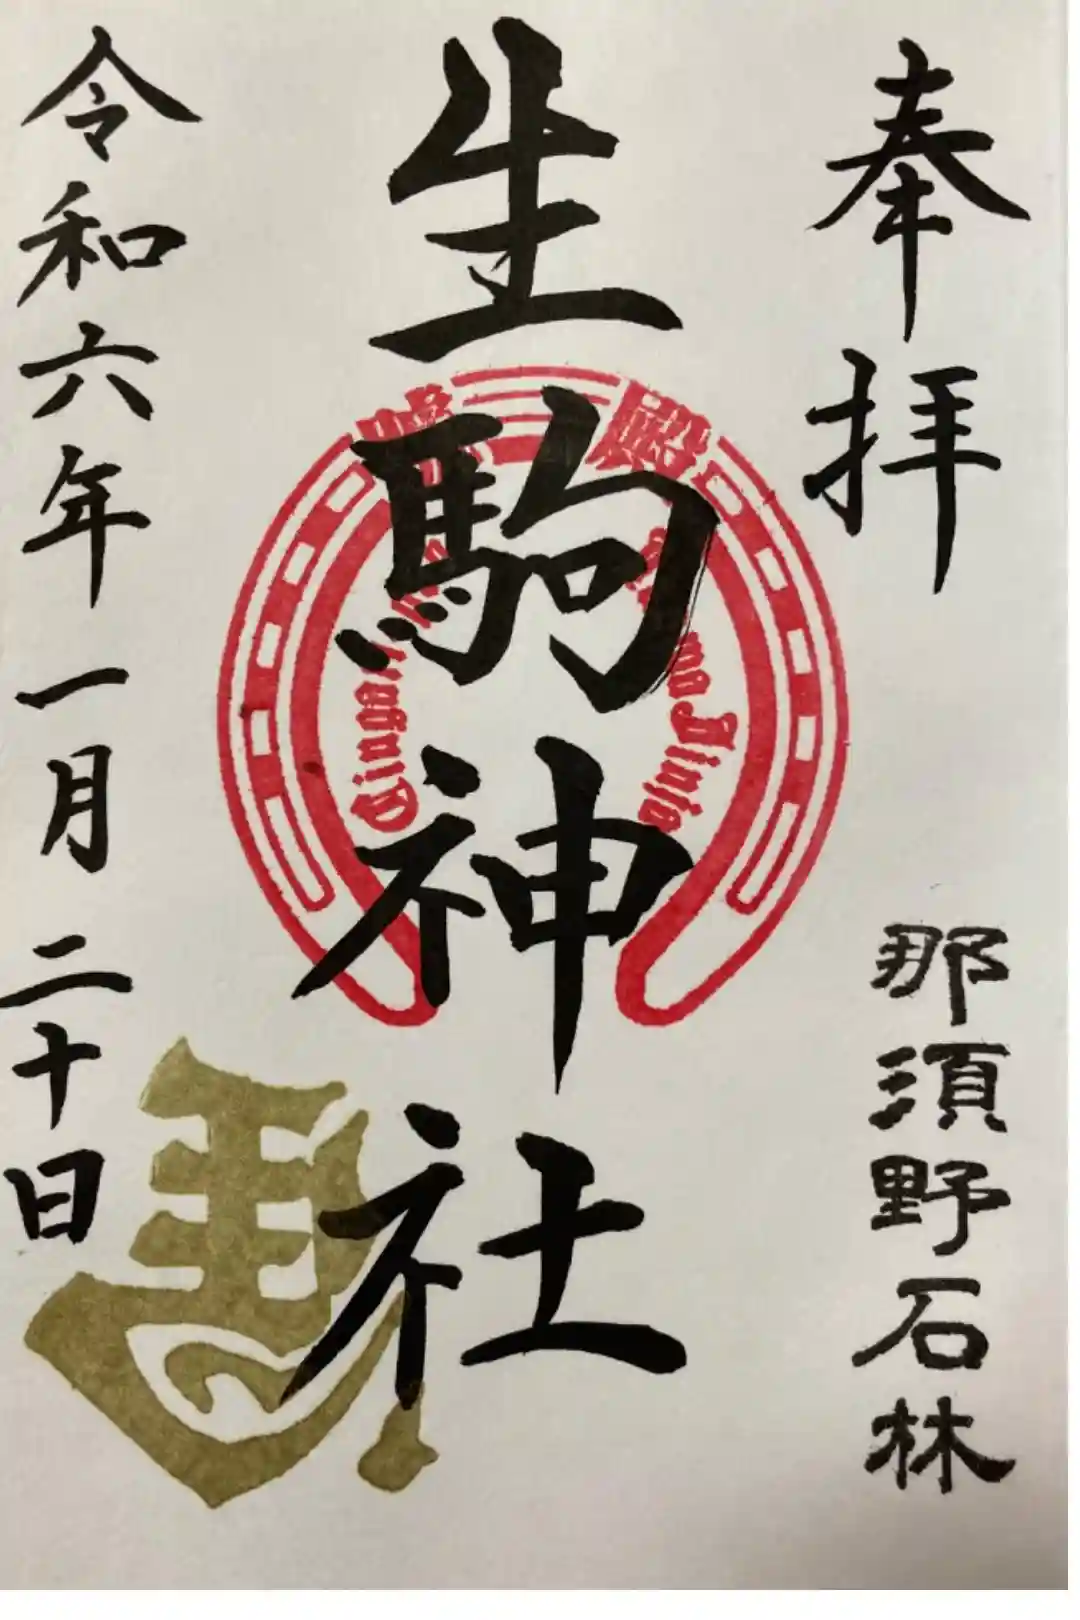 奉拝
那須野石林
生駒神社
令和六年一月二十日